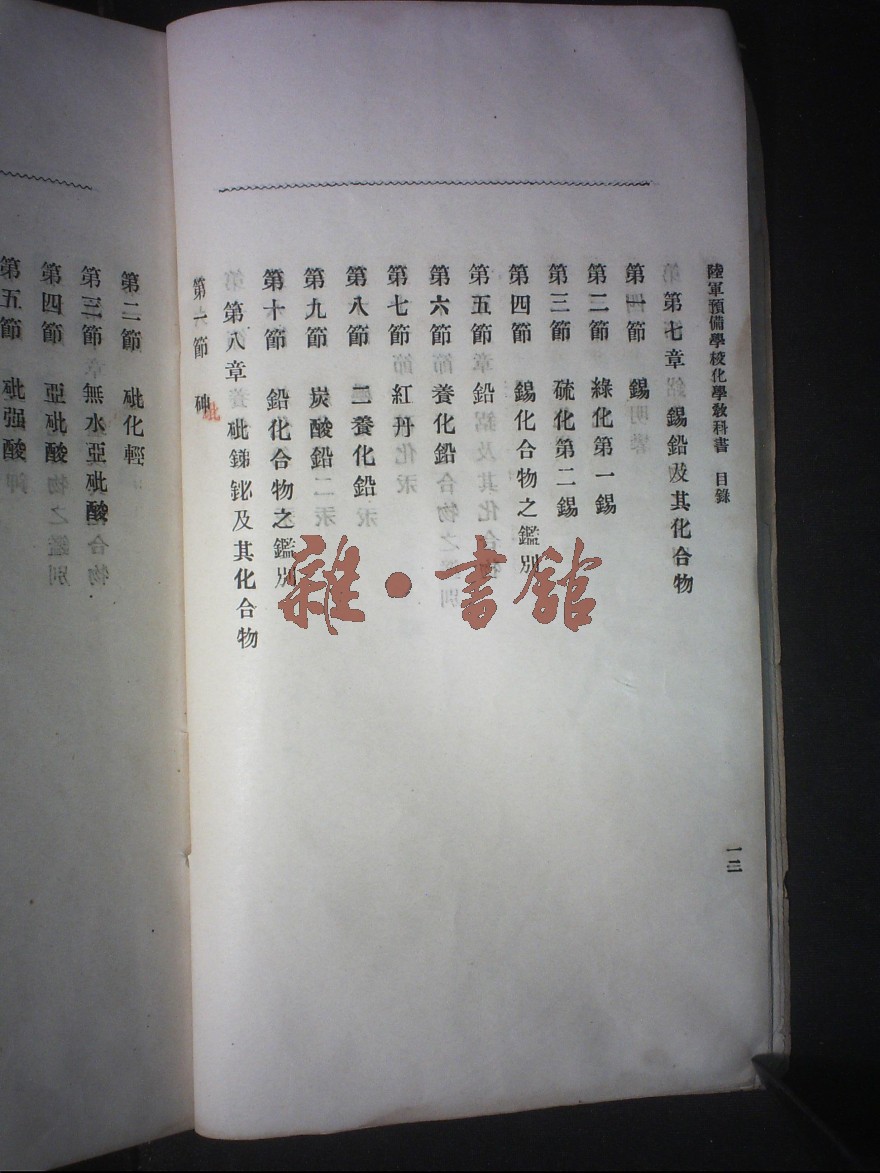 陸軍預備學校化學教科書 目錄
第七章 錫鉛及其化合物
第一節 錫
第二節 綠化第一錫
第三節 硫化第二錫
第四節 錫化合物之鑑別
第五節 鉛
第六節 養化鉛
第七節 紅丹
第八節 二養化鉛
第九節 炭酸鉛
第十節 鉛化合物之鑑別
第八章 砒銻鉍及其化合物
第一節 砷
砒
第二節 砒化輕
第三節 無水亞砒酸
第四節 亞砒酸
第五節 砒强酸
一二
雜·書館